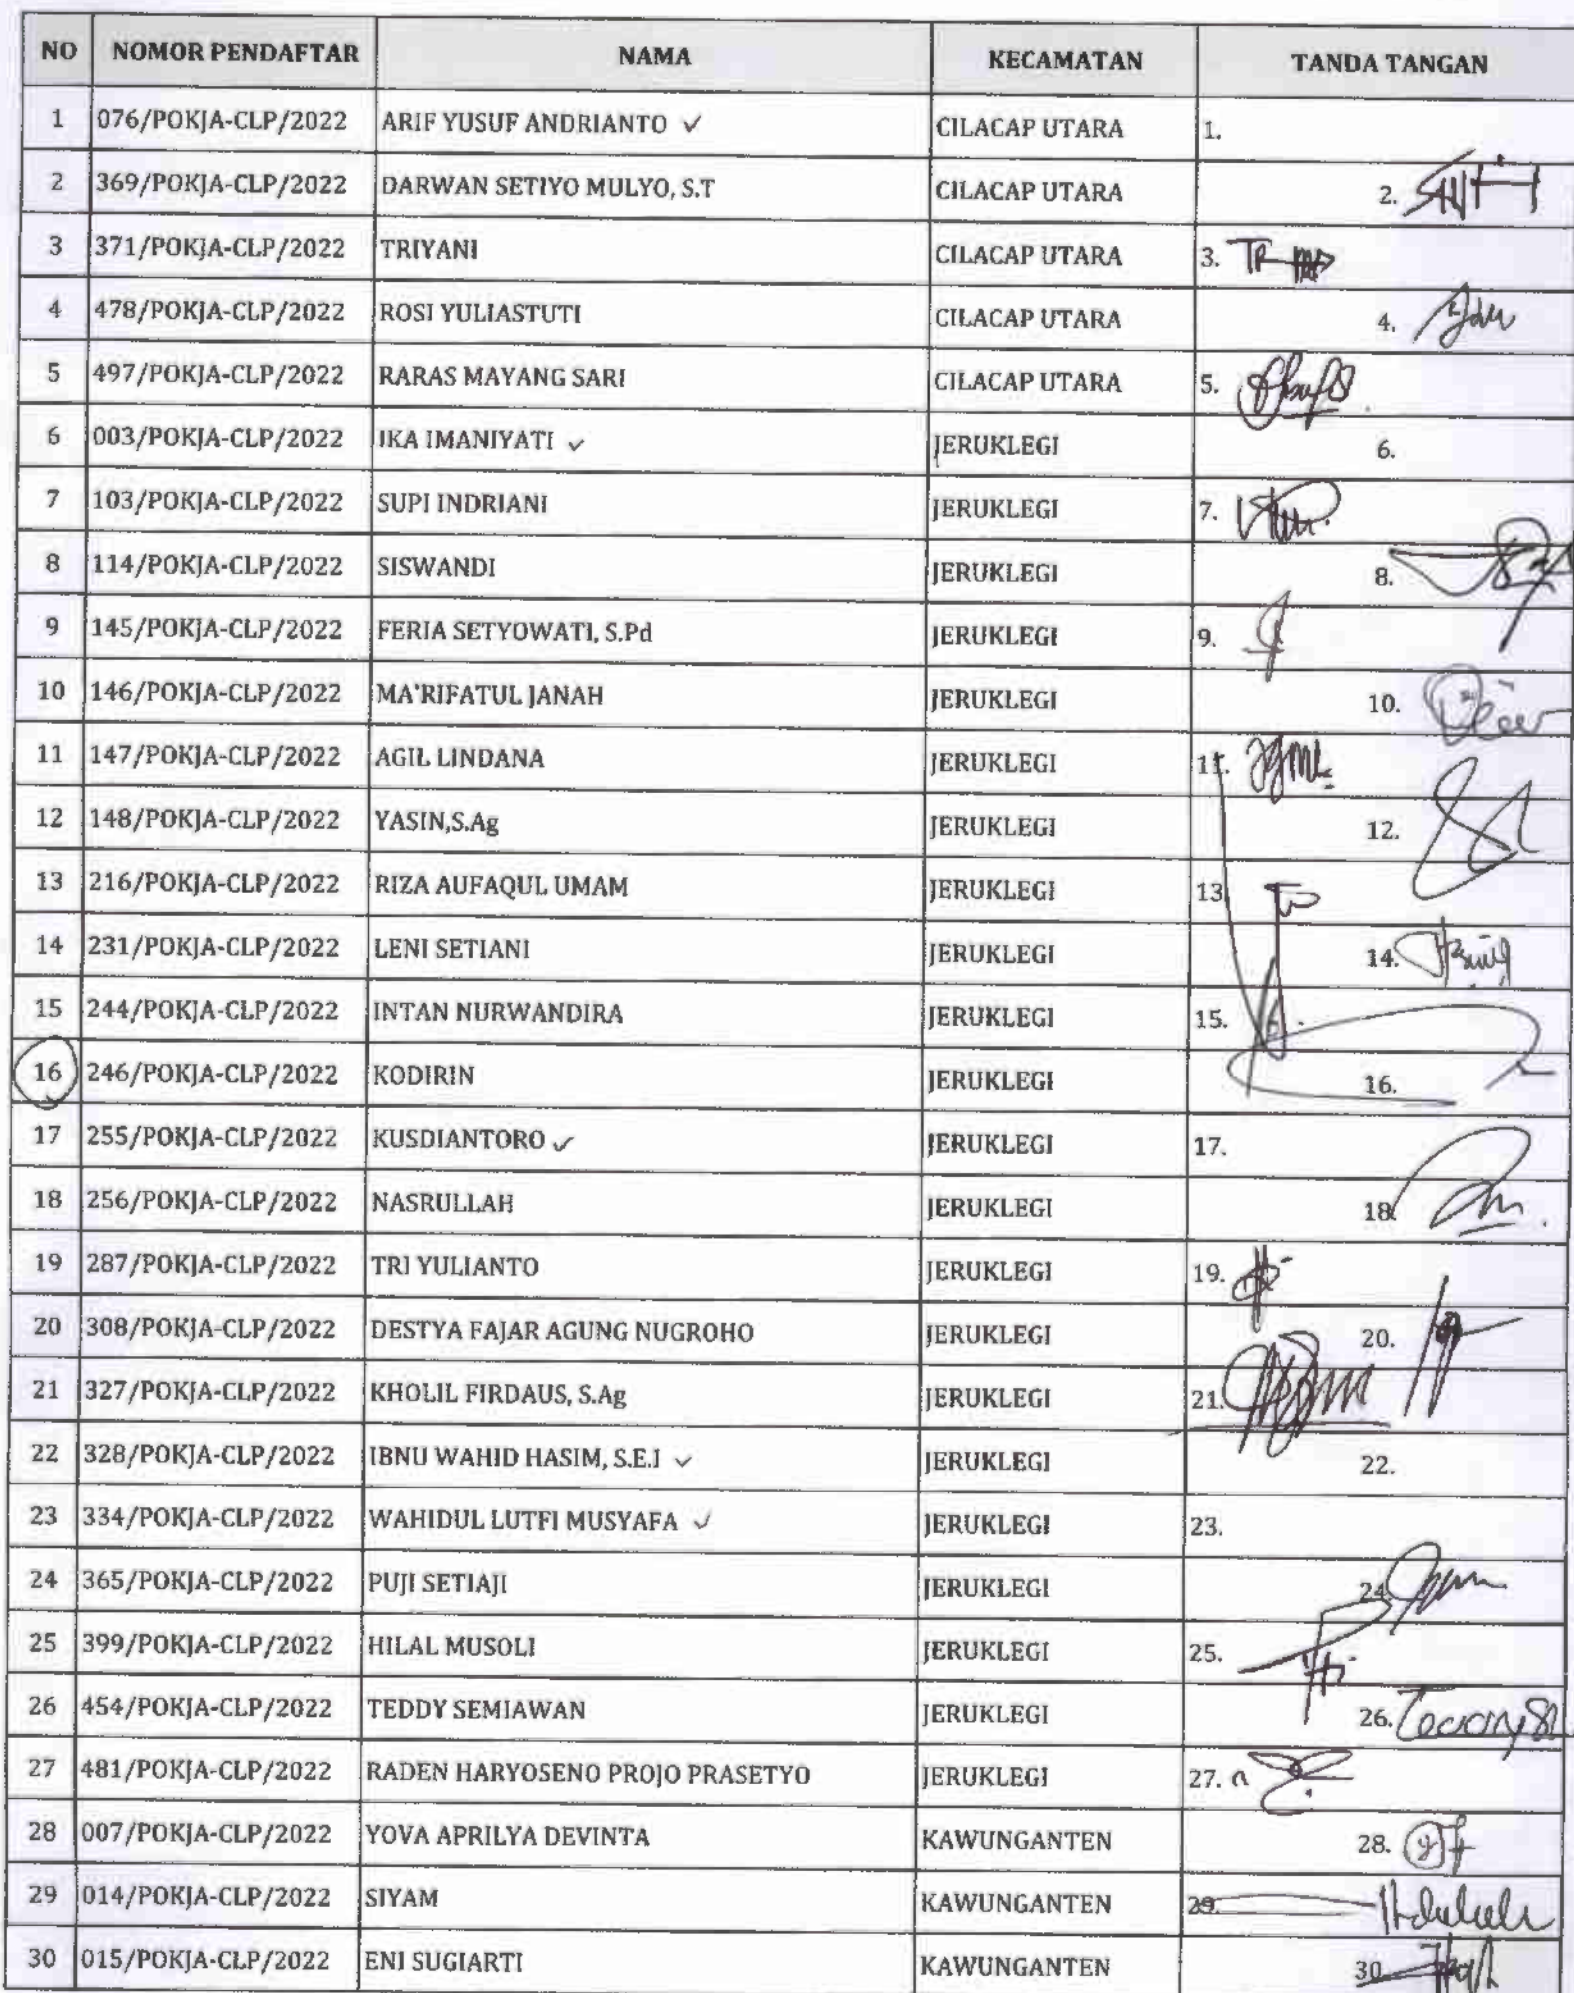 NO NOMOR PENDAFTAR NAMA KECAMATAN TANDA TANGAN
1 076/POKJA-CLP/2022 ARIF YUSUF ANDRIANTO ✓ CILACAP UTARA 1.
2 369/POKJA-CLP/2022 DARWAN SETIYO MULYO, S.T CILACAP UTARA 2.
3 371/POKJA-CLP/2022 TRIYANI CILACAP UTARA 3.
4 478/POKJA-CLP/2022 ROSI YULIASTUTI CILACAP UTARA 4.
5 497/POKJA-CLP/2022 RARAS MAYANG SARI CILACAP UTARA 5.
6 003/POKJA-CLP/2022 IKA IMANIYATI ✓ JERUKLEGI 6.
7 103/POKJA-CLP/2022 SUPI INDRIANI JERUKLEGI 7.
8 114/POKJA-CLP/2022 SISWANDI JERUKLEGI 8.
9 145/POKJA-CLP/2022 FERIA SETYOWATI, S.Pd JERUKLEGI 9.
10 146/POKJA-CLP/2022 MA'RIFATUL JANAH JERUKLEGI 10.
11 147/POKJA-CLP/2022 AGIL LINDANA JERUKLEGI 11.
12 148/POKJA-CLP/2022 YASIN,S.Ag JERUKLEGI 12.
13 216/POKJA-CLP/2022 RIZA AUFAQUL UMAM JERUKLEGI 13
14 231/POKJA-CLP/2022 LENI SETIANI JERUKLEGI 14.
15 244/POKJA-CLP/2022 INTAN NURWANDIRA JERUKLEGI 15.
16 246/POKJA-CLP/2022 KODIRIN JERUKLEGI 16.
17 255/POKJA-CLP/2022 KUSDIANTORO ✓ JERUKLEGI 17.
18 256/POKJA-CLP/2022 NASRULLAH JERUKLEGI 18
19 287/POKJA-CLP/2022 TRI YULIANTO JERUKLEGI 19.
20 308/POKJA-CLP/2022 DESTYA FAJAR AGUNG NUGROHO JERUKLEGI 20.
21 327/POKJA-CLP/2022 KHOLIL FIRDAUS, S.Ag JERUKLEGI 21.
22 328/POKJA-CLP/2022 IBNU WAHID HASIM, S.E.I ✓ JERUKLEGI 22.
23 334/POKJA-CLP/2022 WAHIDUL LUTFI MUSYAFA ✓ JERUKLEGI 23.
24 365/POKJA-CLP/2022 PUJI SETIAJI JERUKLEGI 24
25 399/POKJA-CLP/2022 HILAL MUSOLI JERUKLEGI 25.
26 454/POKJA-CLP/2022 TEDDY SEMIAWAN JERUKLEGI 26.
27 481/POKJA-CLP/2022 RADEN HARYOSENO PROJO PRASETYO JERUKLEGI 27.
28 007/POKJA-CLP/2022 YOVA APRILYA DEVINTA KAWUNGANTEN 28.
29 014/POKJA-CLP/2022 SIYAM KAWUNGANTEN 29.
30 015/POKJA-CLP/2022 ENI SUGIARTI KAWUNGANTEN 30